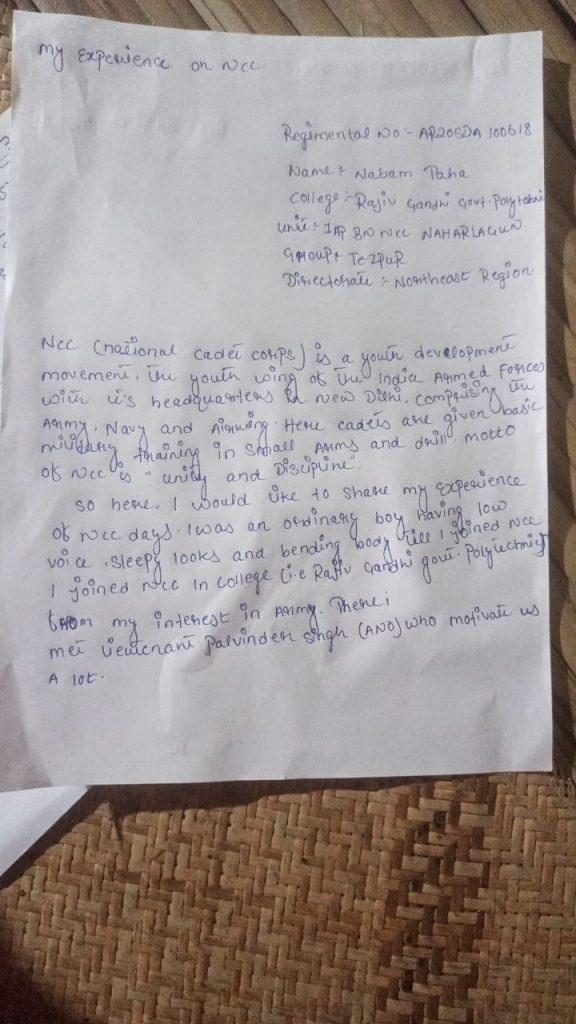 My Experience on NCC
Regimental No :- AP20SDA100618
Name :- Nabam Taha
College :- Rajiv Gandhi Govt. Polytechnic
Unit :- 1 AP BN NCC NAHARLAGUN
Group :- TEZPUR
Directorate :- Northeast Region.
NCC (national cadet corps) is a youth development
movement. The youth wing of the India Armed Forces
with it's headquarters in New Delhi. comprising the
Army, Navy and Airwing. Here cadets are given basic
military training in small Arms and drill motto
of NCC is "unity and Discipline".
So here, I would like to share my experience
of NCC days. I was an ordinary boy having low
voice, sleepy looks and bending body till I joined NCC
I joined NCC in college (i.e Rajiv Gandhi govt. Polytechnic)
from my interest in Army. There i
met lieutenant Parvinder singh (ANO) who motivate us
A lot.